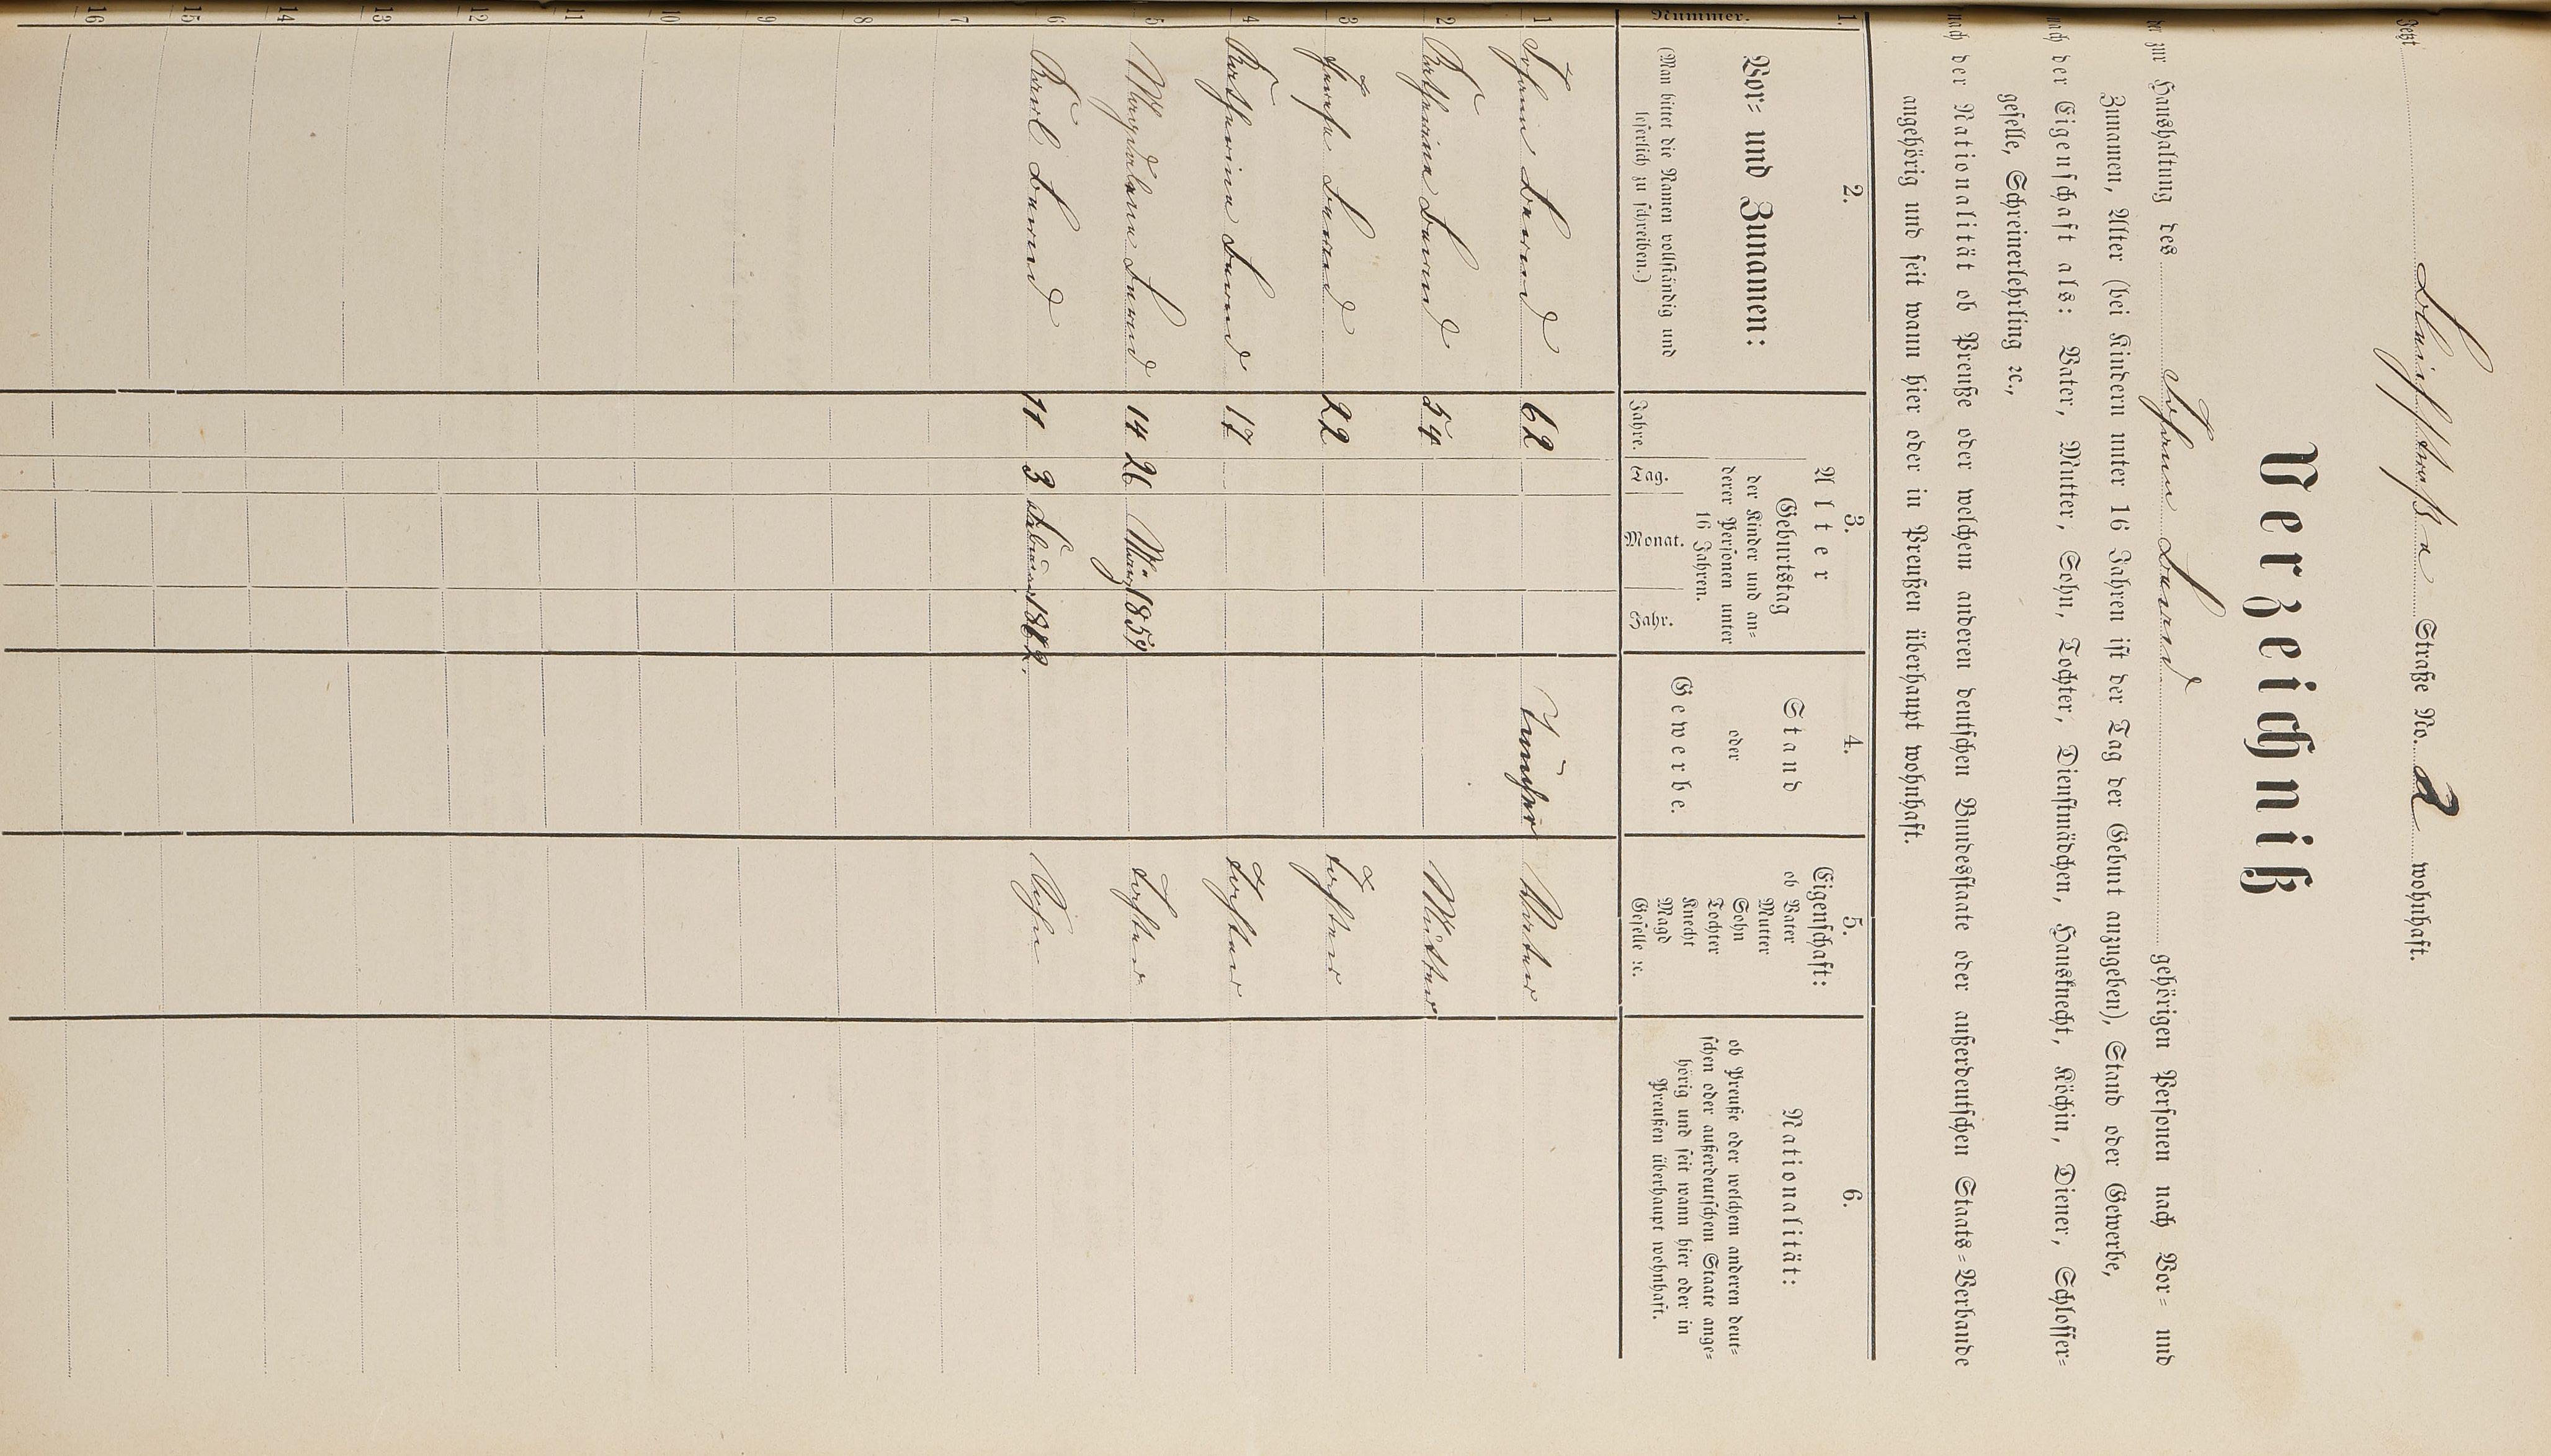 Jetzt Straße No. 2 wohnhaft.
Verzeichniß
der zur Haushaltung des Johann Berend gehörigen Personen nach Vor- und
Zunamen, Alter (bei Kindern unter 16 Jahren ist der Tag der Geburt anzugeben), Stand oder Gewerbe,
nach der Eigenschaft als: Vater, Mutter, Sohn, Tochter, Dienstmädchen, Hausknecht, Köchin, Diener, Schlosser-
geselle, Schreinerlehrling ꝛc.,
nach der Nationalität ob Preuße oder welchem anderen deutschen Bundesstaate oder außerdeutschen Staats-Verbande
angehörig und seit wann hier oder in Preußen überhaupt wohnhaft.
1. 2. 3. 4. 5. 6.
Nummer.
Vor- und Zunamen:
(Man bittet die Namen vollständig und
leserlich zu schreiben.)
Alter
Geburtstag
der Kinder und an-
derer Personen unter
16 Jahren.
Jahre. Tag. Monat. Jahr.
Stand
oder
Gewerbe.
Eigenschaft:
ob Vater
Mutter
Sohn
Tochter
Knecht
Magd
Geselle ꝛc.
Nationalität:
ob Preuße oder welchem anderen deut-
schen oder außerdeutschem Staate ange-
hörig und seit wann hier oder in
Preußen überhaupt wohnhaft.
1 Johann Berend 62 Vater
2 Katharina Berend 54 Mutter
3 Berend 22 Tochter
4 Katharina Berend 17 Tochter
5 Magdalena Berend 14 26 März 1859 Tochter
6 Karl Berend 11 3 Februar 1862. Sohn
7
8
9
10
11
12
13
14
15
16